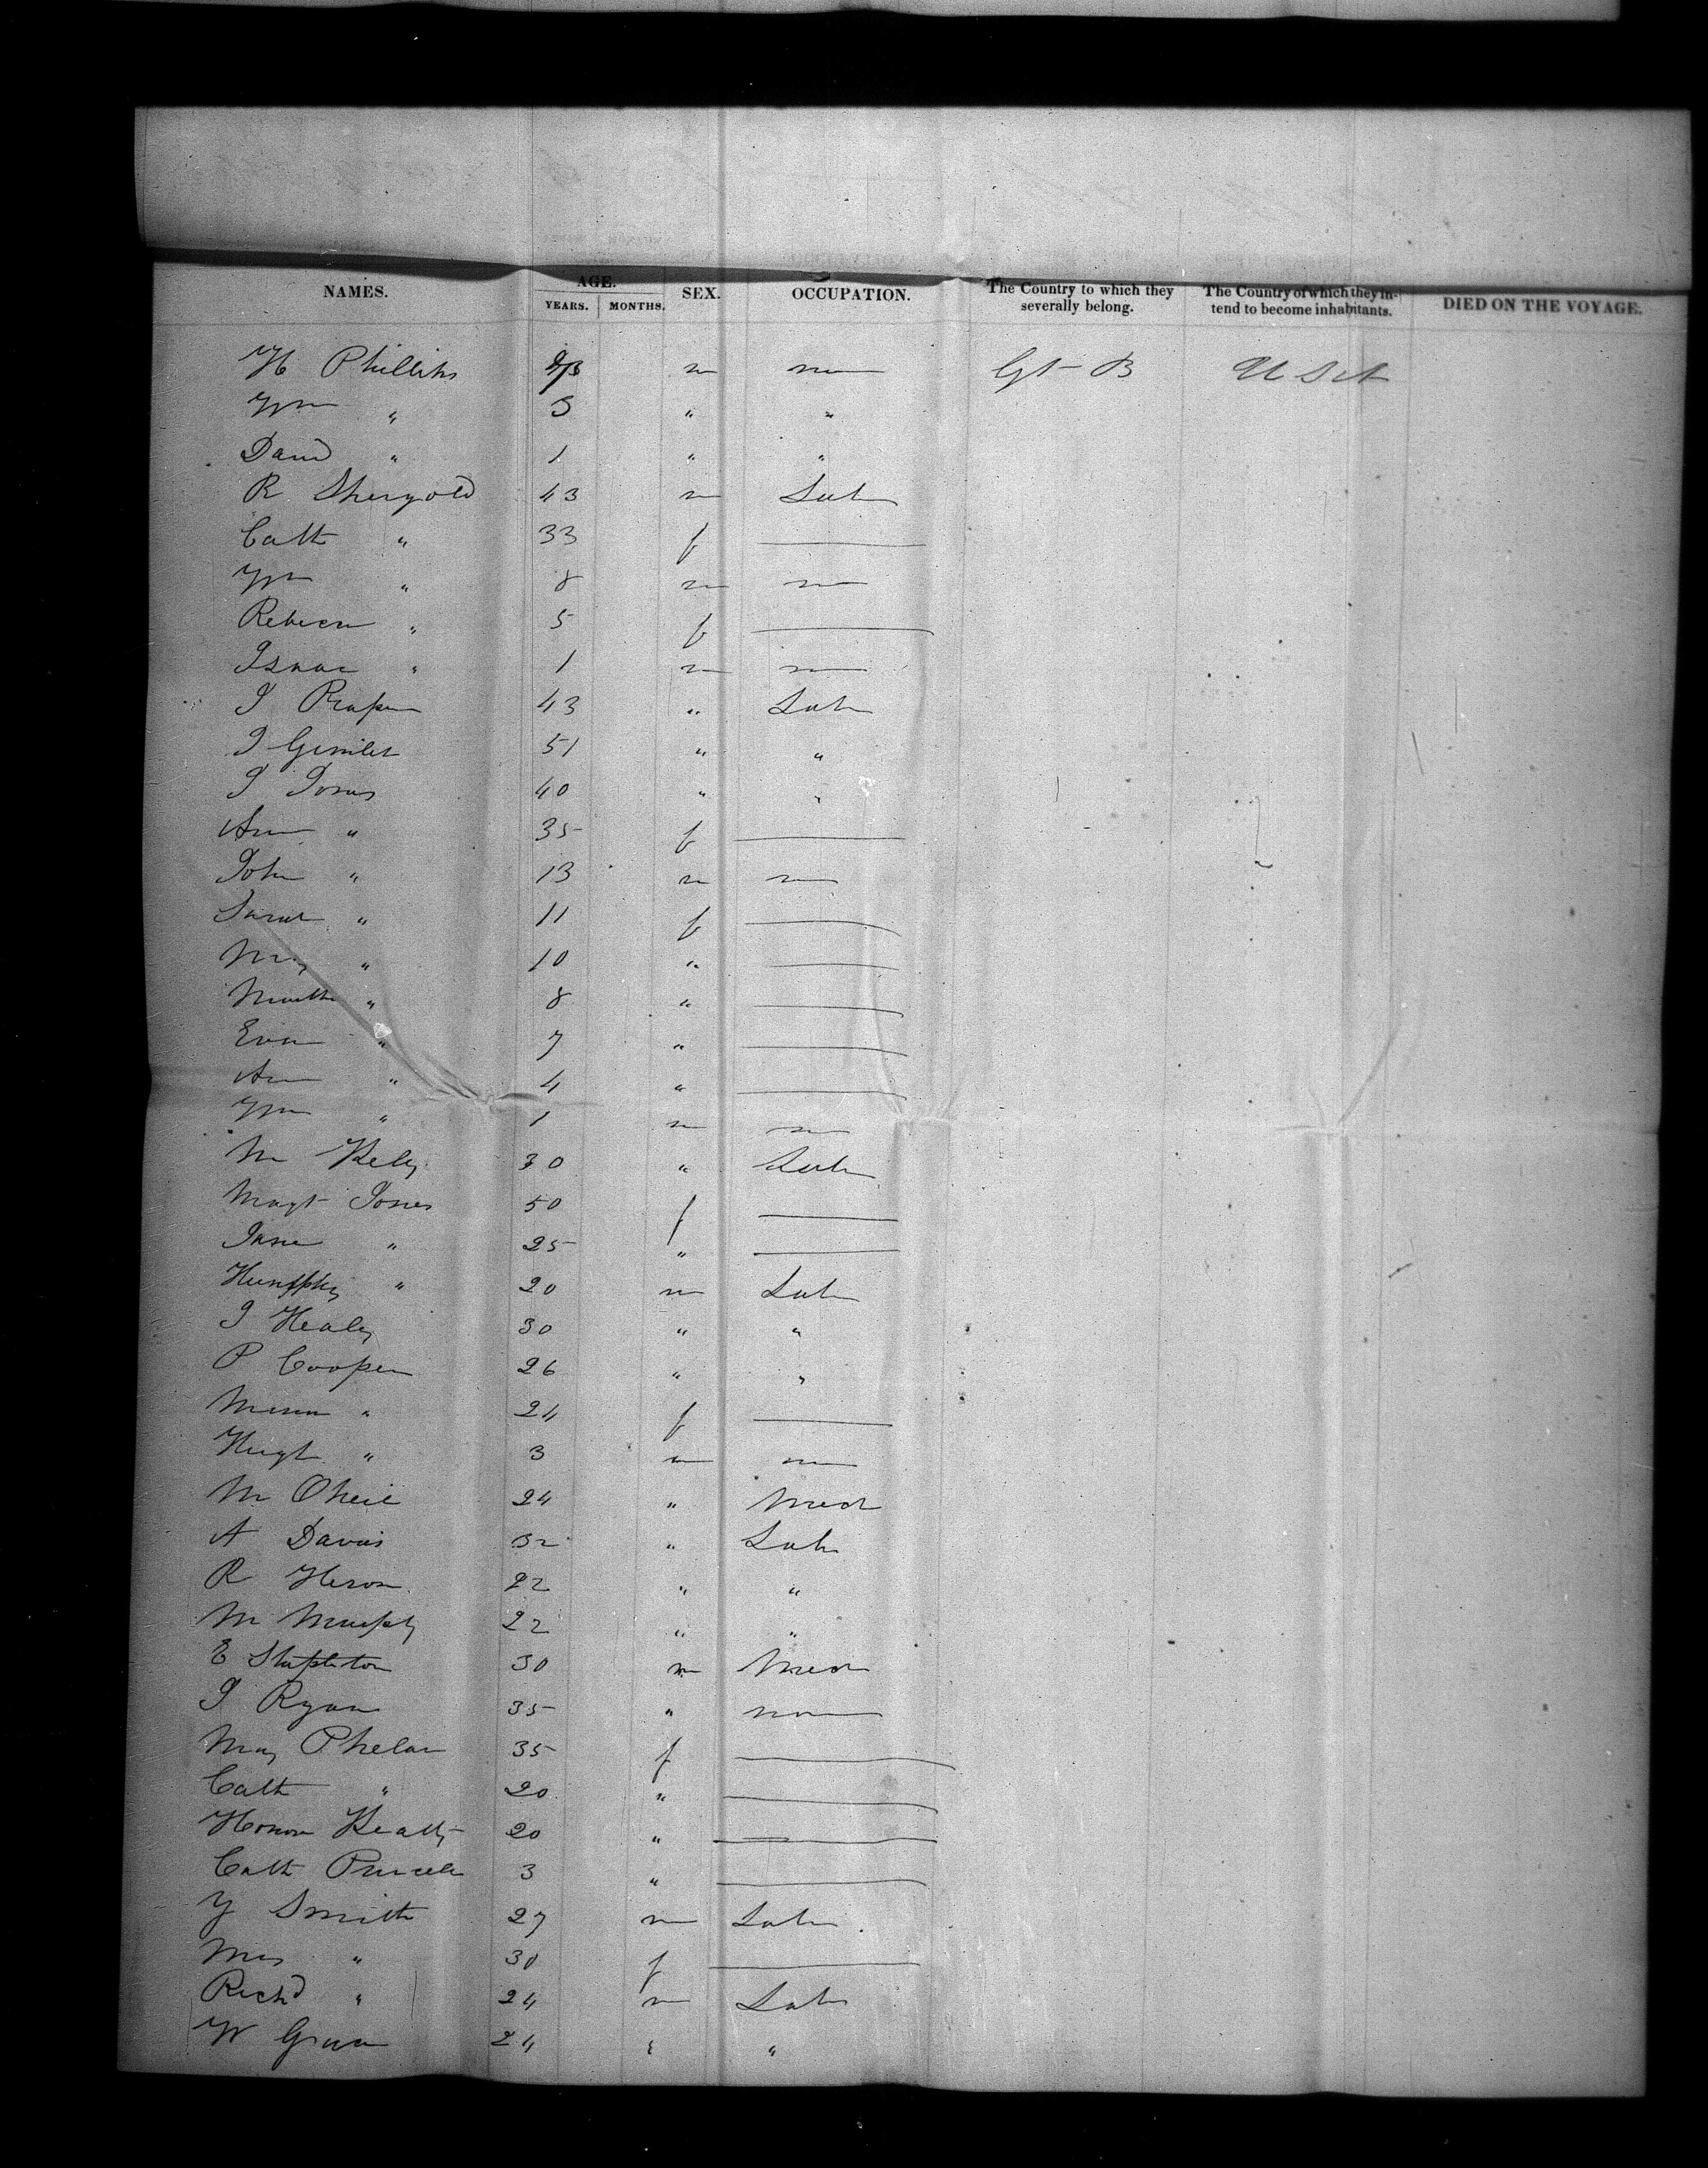 NAMES. AGE. YEARS. MONTHS. SEX. OCCUPATION. The Country to which they severally belong. The Country of which they intend to become inhabitants. DIED ON THE VOYAGE.
H Phillips m Gt B U S A
Wm " 3 " "
David " 1 " "
R Shergold 43 m Lab
Cath " 33 f
Wm " 8 m
Rebecca " 5 f
Isaac " 1 m
J 43 " Lab
J 51 " "
J Jones 40 " "
Ann " 35 f
John " 13 m
Sarah " 11 f
" 10 "
Martha " 8 "
Evan " 7 "
Ann " 4 "
Wm " 1 m
M Kely 30 " Lab
Magt Jones 50 f
Jane " 25 "
Humphy " 20 m Lab
J Healy 30 " "
P Cooper 26 " "
" 24 f
Hugh " 3 m
M Oneil 24 " Mech
A Davis 32 " Lab
R Heron 22 " "
M Murphy 22 " "
E Stapleton 30 m Mech
J Ryan 35 "
May Phelan 35 f
Cath " 20 "
Honor Keatly 20 "
Cath Purcell 3 "
Y Smith 27 m Lab
" 30 f
Richd " 24 m Lab
W 24 "